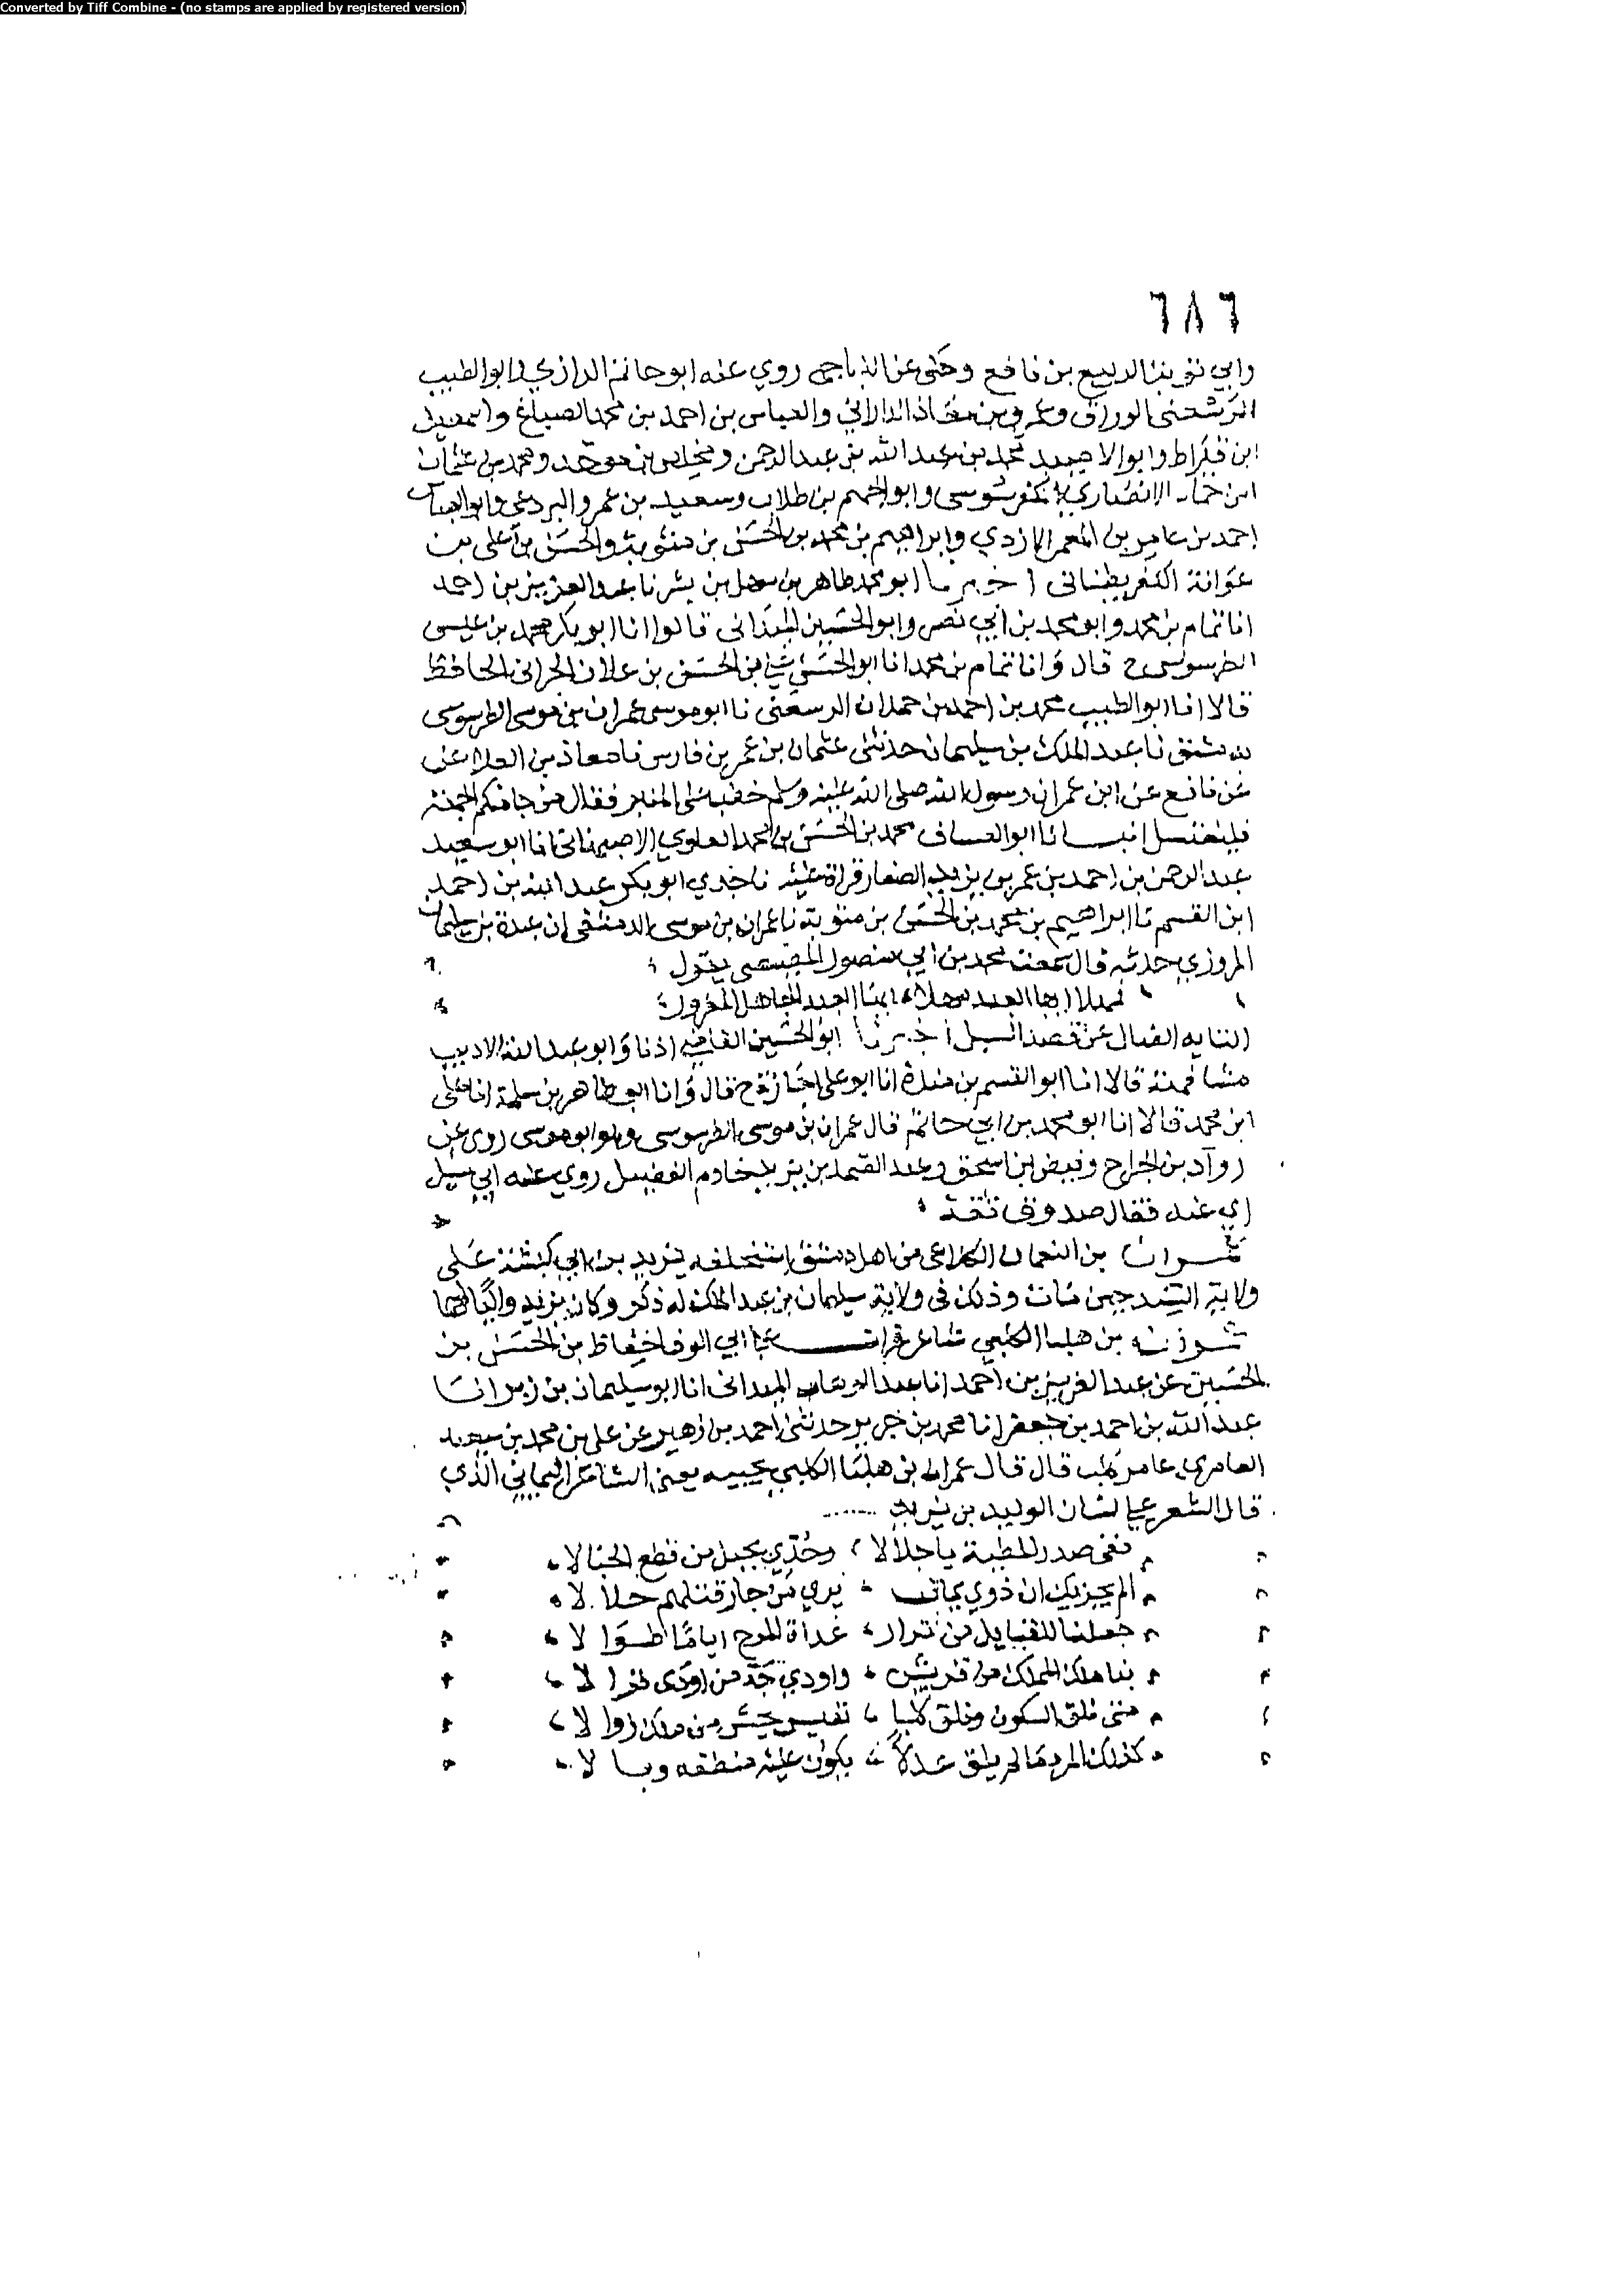 Converted by Tiff Combine - (no stamps are applied by registered version)
٦٨٦
وابي توبة الربيع بن نافع وحكى عن الناجي روى عنه ابو حاتم الرازي وابو الطيب
الرسعني الوراق وعمرو بن معاذ الداراني والعباس بن احمد بن محمد الصباغ واسمعيل
ابن قيراط وابو الاصيد محمد بن عبد الله بن عبد الرحمن ومخلد بن موحد ومحمد بن عثمان
ابن حماد الانصاري الكفرسوسي وابو الجهم بن طلاب وسعيد بن عمرو البردعي وابو العباس
احمد بن عامر بن المعمر الازدي وابراهيم بن محمد بن الحسن بن متويه والحسن بن علي بن
عوانة الكفربطناني اخبرنا ابو محمد طاهر بن سهل بن بشر نا عبد العزيز بن احمد
انا تمام بن محمد وابو محمد بن ابي نصر وابو الحسين الميداني قالوا انا ابو بكر محمد بن عيسى
الطرسوسي ح قال وانا تمام بن محمد انا ابو الحسن علي بن الحسن بن علان الحراني الحافظ
قالا انا ابو الطيب محمد بن احمد بن حمدان الرسعني نا ابو موسى عمران بن موسى الطرسوسي
بدمشق نا عبد الملك بن سليمان حدثني عثمان بن عمر بن فارس نا معاذ بن العلا عن
عن نافع عن ابن عمر ان رسول الله صلى الله عليه وسلم خطب على المنبر فقال من جا منكم الجمعة
فليغتسل انبانا ابو العساف محمد بن الحسن بن محمد العلوي الاصبهاني انا ابو سعيد
عبد الرحمن بن احمد بن عمر بن يزيد الصفار قراة عليه نا جدي ابو بكر عبد الله بن احمد
ابن القسم نا ابراهيم بن محمد بن الحسن بن متويه نا عمران بن موسى الدمشقي ان عبدة بن سليمان
المروزي حدثه قال سمعت محمد بن ابي منصور المصيصي يقول
مهلا ايها العبد مهلا ايها العبد الجاهل المغرور
التايه الضال عن قصد السبيل اخبرنا ابو الحسين القاضي اذنا وابو عبد الله الاديب
مشافهة قالا انا ابو القسم بن مندة انا ابو علي اجازة ح قال وانا ابو طاهر بن سلمة انا علي
ابن محمد قالا انا ابو محمد بن ابي حاتم قال عمران بن موسى الطرسوسي وهو ابو موسى روى عن
رواد بن الجراح وفيض بن اسحق وعبد الصمد بن يزيد خادم الفضيل روى عنه ابي سيل
ابي عنه فقال صدوق ثقة
عمران بن النعمان الكلاعي من اهل دمشق استخلفه يزيد بن ابي كبشة على
ولاية السند حين مات وذلك في ولاية سليمان بن عبد الملك له ذكر وكان يزيد واليا لها
بن هلبا الكلبي شاعر قرات على ابي الوفا حفاظ بن الحسن بن
الحسين عن عبد العزيز بن احمد انا عبد الوهاب الميداني انا ابو سليمان بن زبر انا
عبد الله بن احمد بن جعفر انا محمد بن جرير حدثني احمد بن زهير عن علي بن محمد بن سعيد
العامري عامر كلب قال قال عمران بن هلبا الكلبي يجيبه يعني الشاعر اليماني الذي
قال الشعر على لسان الوليد بن يزيد
قفي صدر المطية يا حلالا وجذي بحبل من قطع الحبالا
الم يحزنك ان ذوي يمان يرى من حاز قتلهم حلالا
جعلنا للقبايل من نزار غداة المرج اياما طوالا
بنا ملك المملك من قريش واودى جد من اودى فزالا
متى تلق السكون وتلق كلبا بعبس تخش من ملك زوالا
كذاك المرء ما لم يلق عدلا يكون عليه منطقه وبالا